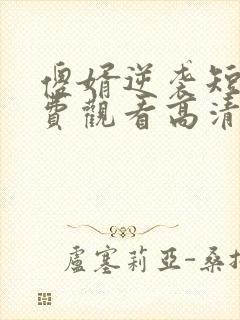 傻婿逆袭短
費觀看高清
盧塞莉亞-桑